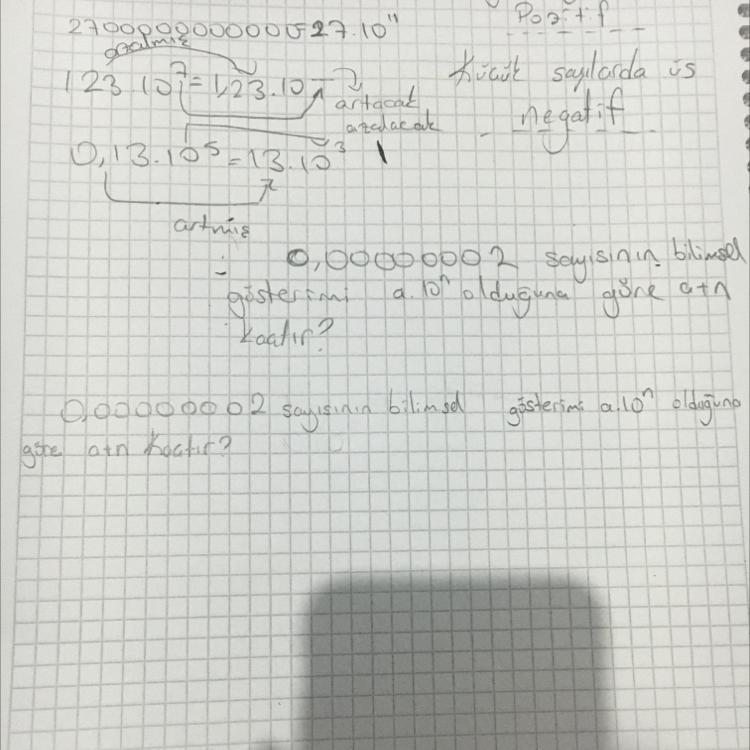 270000000000=27.10¹¹
Pozitif
azalmış
123.10⁷=1,23.10
artacak
azalacak
Küçük sayılarda üs
negatif
0,13.10⁵=13.10³
artmış
0,00000002 sayısının bilimsel
gösterimi a.10ⁿ olduğuna göre a+n
kaçtır?
0,00000002 sayısının bilimsel gösterimi a.10ⁿ olduğuna
göre a+n kaçtır?